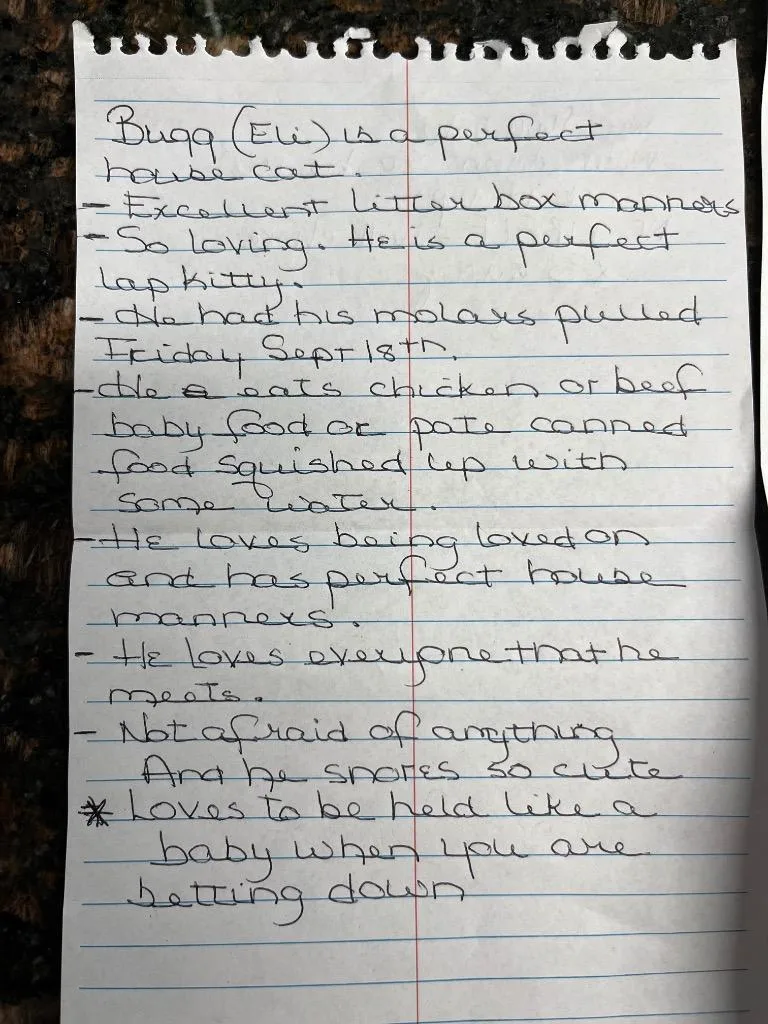 Bugg (Eli) is a perfect
house cat.
- Excellent litter box manners
- So loving. He is a perfect
lap kitty.
- He had his molars pulled
Friday Sept 18th.
- He eats chicken or beef
baby food or pate canned
food squished up with
some water.
- He loves being loved on
and has perfect house
manners.
- He loves everyone that he
meets.
- Not afraid of anything
And he snores so cute
* Loves to be held like a
baby when you are
betting down